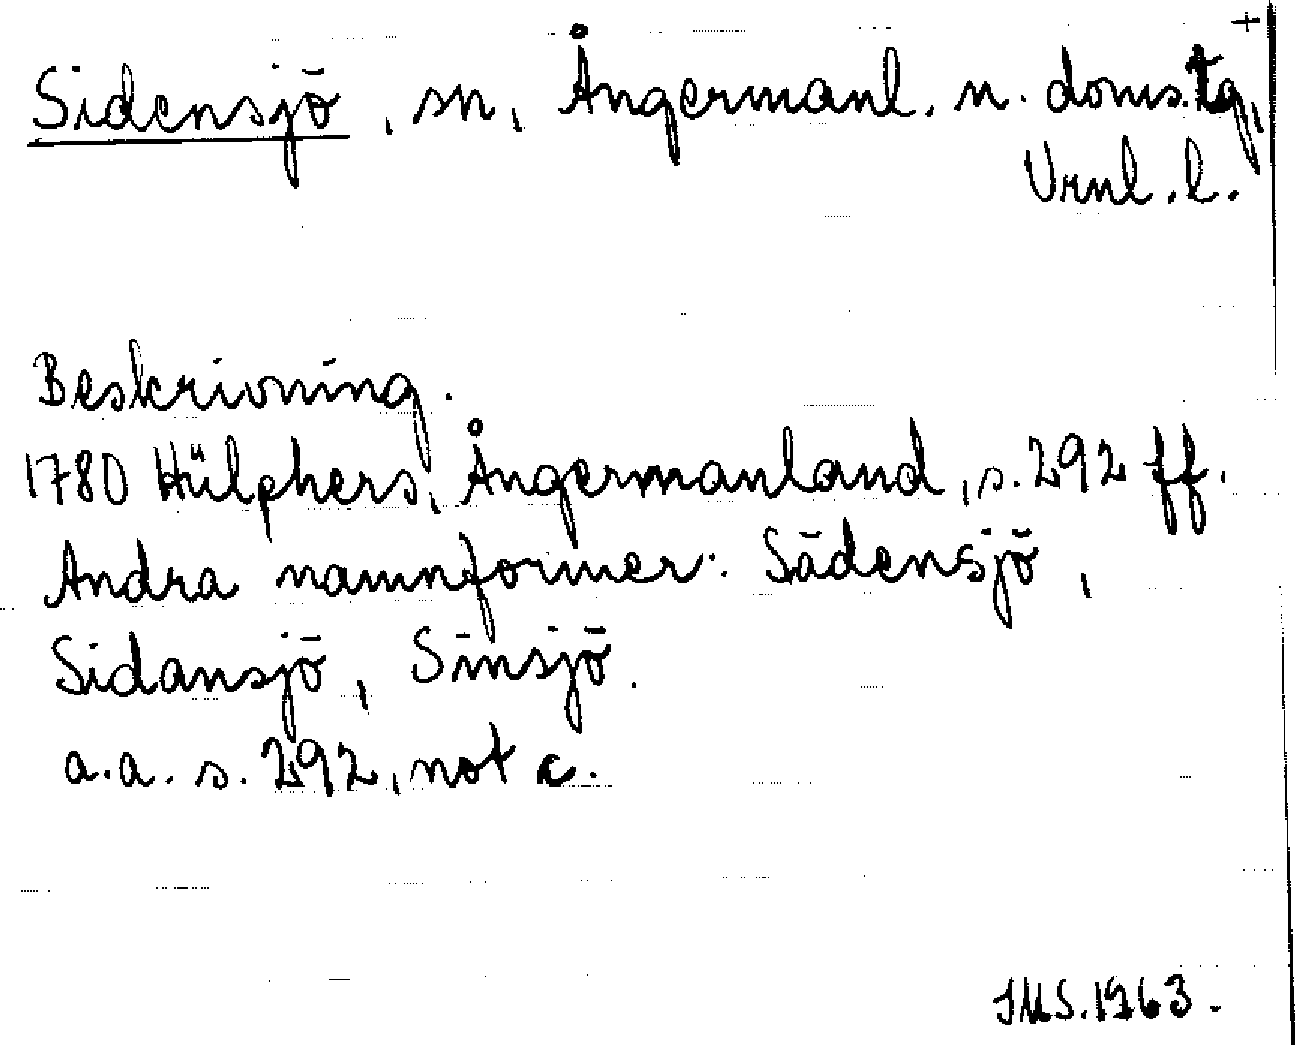 +
Sidensjö, sn, Ångermanl. n. doms.tg,
Vrnl. l.
Beskrivning.
1780 Hülphers, Ångermanland, s. 292 ff.
Andra namnformer: Sädensjö,
Sidansjö, Sinsjö.
a.a. s. 292, not c.
JMS. 1963.